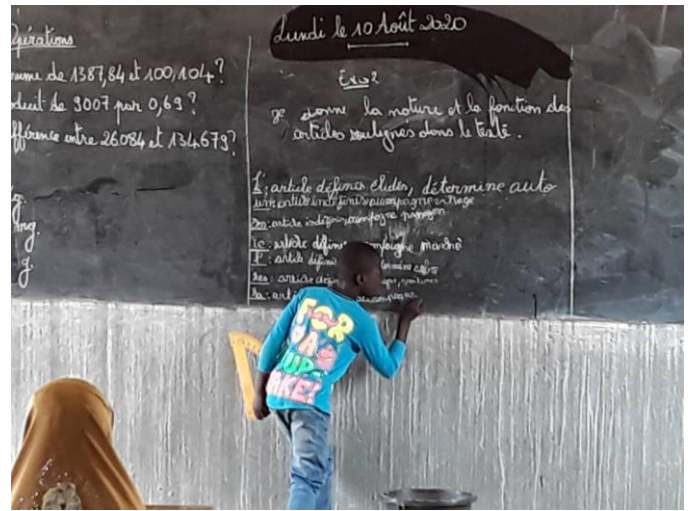 Opérations
mme de 1387,84 et 100,104?
duit de 9007 par 0,69?
fférence entre 26084 et 134679?
g.
mg.
g.
Lundi le 10 Août 2020
Exo2
je donne la nature et la fonction des
articles soulignés dans le texte.
L': article définis élidés, détermine auto
un: article indéfinis, accompagne
un: article indéfinis, accompagne
le: article défini accompagne marché
l': article défini
les: article défini
la: arti accompagne
FOR
UP-
AKE!